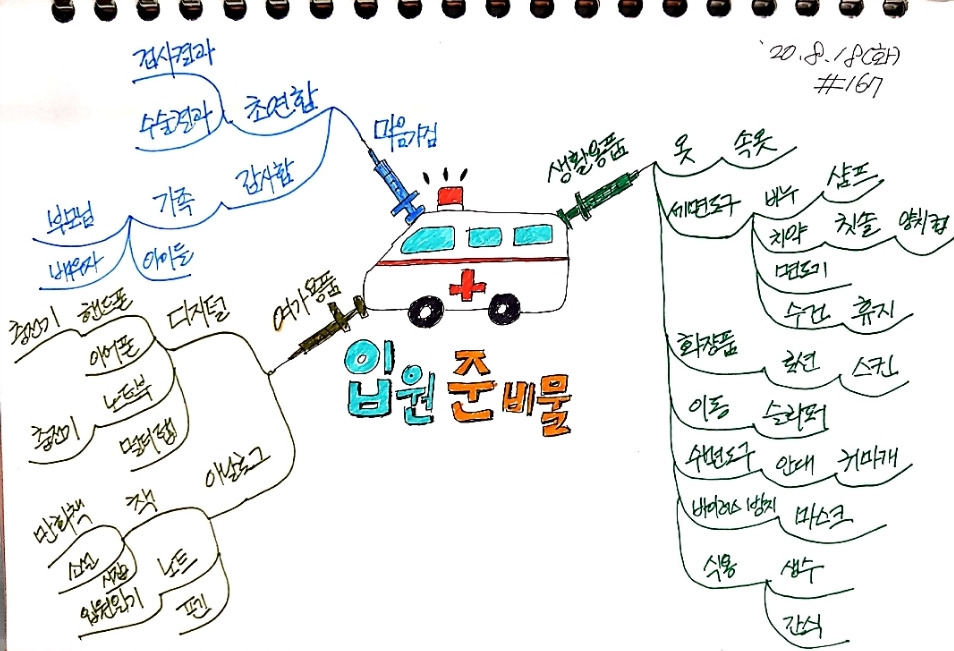 '20.8.18(화)
#167
입원 준비물
마음가짐
초연함
검사결과
수술결과
감사함
가족
부모님
배우자
아이들
생활용품
옷 속옷
세면도구
비누 샴프
치약 칫솔 양치컵
면도기
수건 휴지
화장품 로션 스킨
이동 슬리퍼
수면도구 안대 귀마개
바이러스 방지 마스크
식용 생수
간식
여가용품
디지털
핸드폰 충전기
이어폰
노트북 충전기
멀티탭
아날로그
책 만화책
소설
시집
노트 입원일기
펜